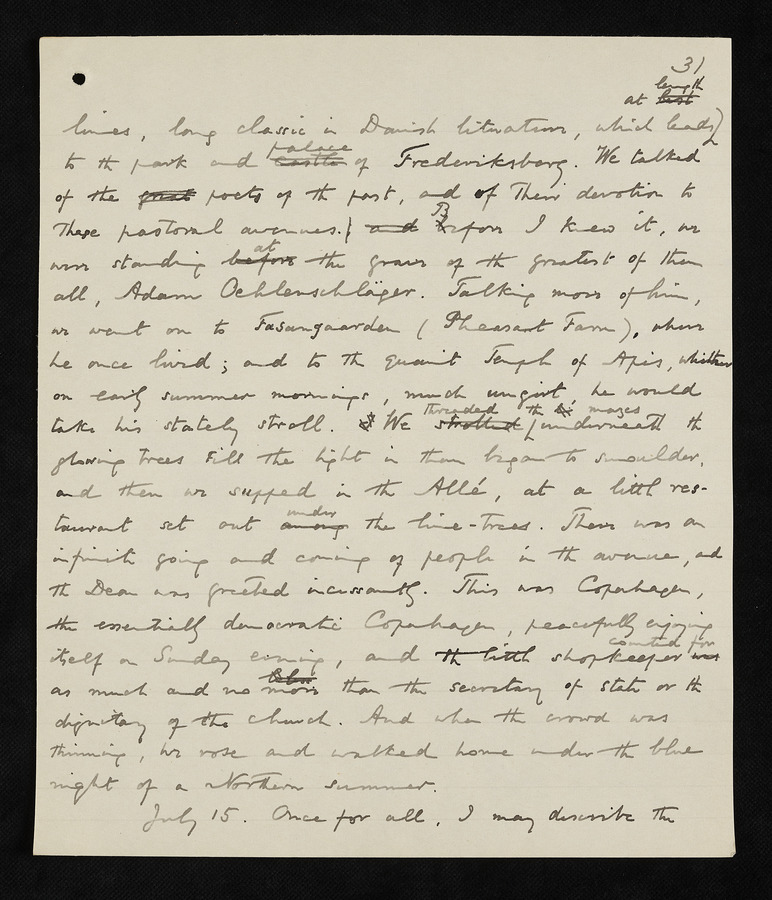 31
at last length
limes, long classic in Danish literature, which leads
to th park and castle palace of Frederiksberg. We talked
of the great poets of th past, and of Their devotion to
These pastoral avenues. } and Before I knew it, we
were standing before at the grave of th greatest of them
all, Adam Oehlenschläger. Talking more of him,
we went on to Fasangaarden ( Pheasant Farm ), where
he once lived ; and to th quaint Temple of Apis, whither
on early summer mornings, much ungirt, he would
take his stately stroll. We strolled threaded th mazes underneath th
glowing trees till the light in them began to smoulder,
and then we supped in th Allé, at a little res-
taurant set out among under the lime-trees. There was an
infinite going and coming of people in th avenue, and
th Dean was greeted incessantly. This was Copenhagen,
the essentially democratic Copenhagen, peacefully enjoying
itself on Sunday evening, and th little shopkeeper was counted for
as much and no more than the secretary of state or th
dignitary of the church. And when th crowd was
thinning, we rose and walked home under th blue
night of a Northern summer.
July 15. Once for all, I may describe the